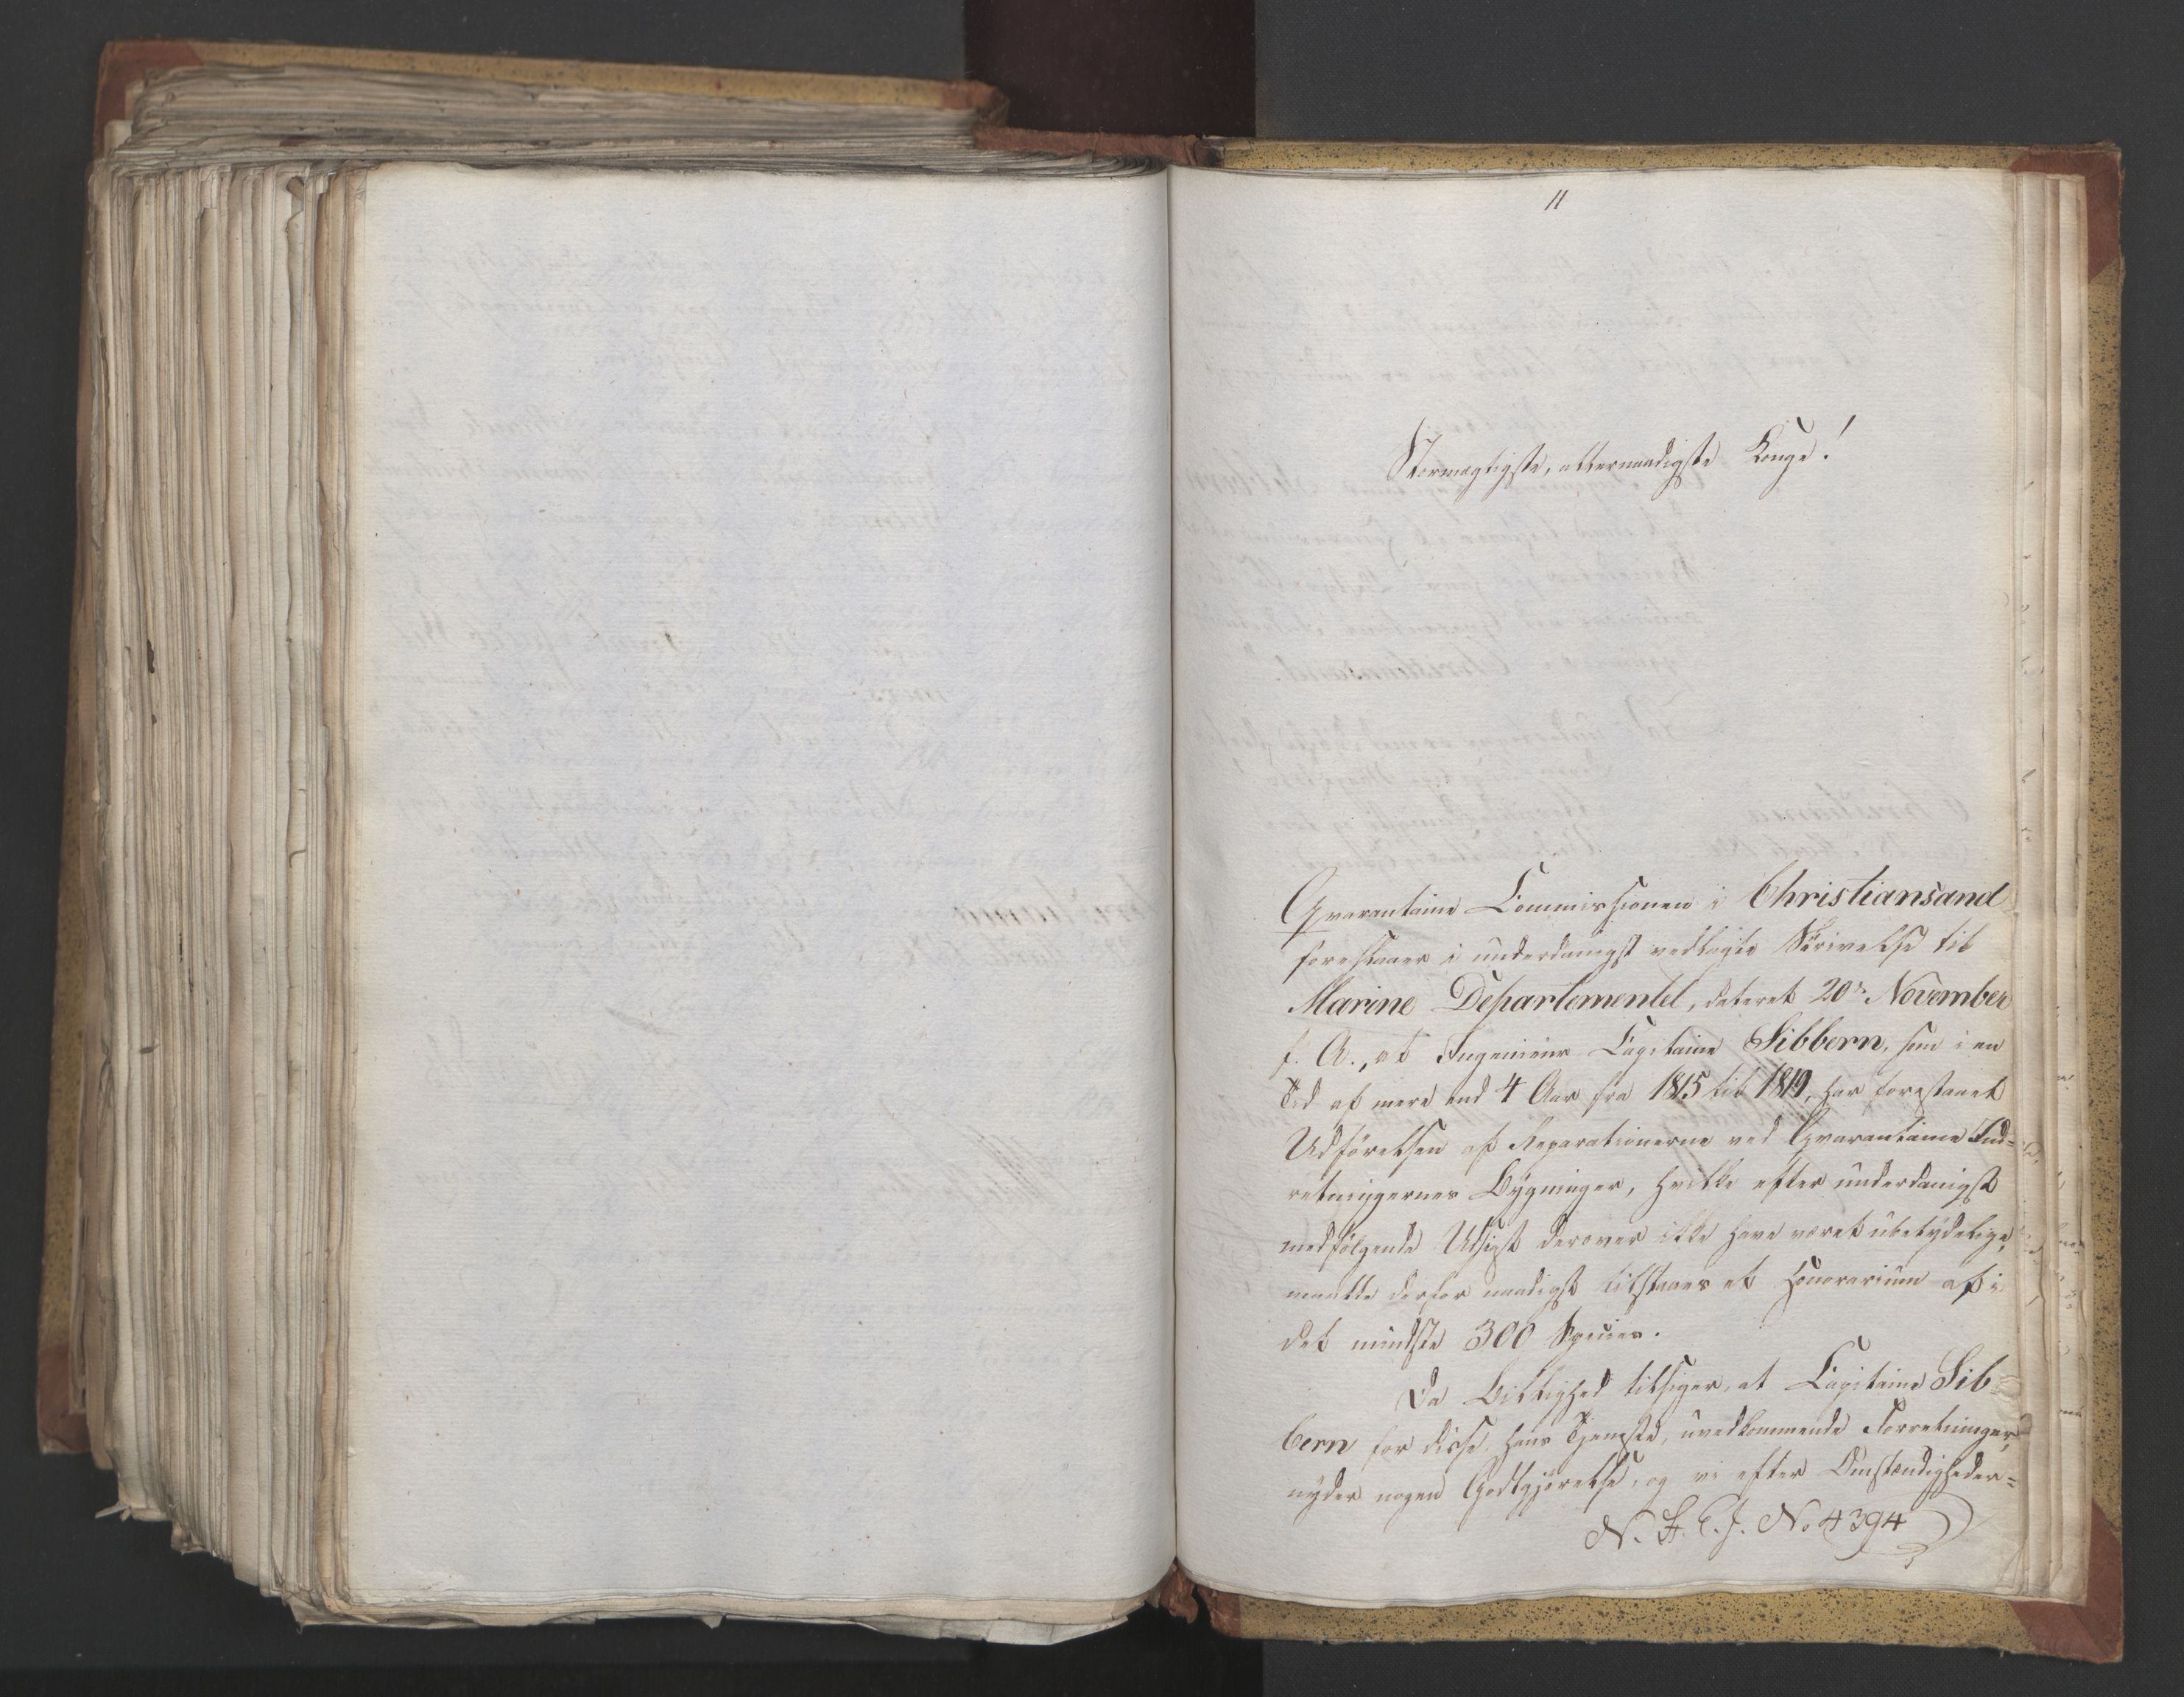 11
Stormægtigste, allernaadigste Konge!
Qvarantaine Commissionen i Christiansand
foreslaaer i underdanigst vedlagte Skrivelse til
Marine Departementet, dateret 20de November
f. A., at Ingenieur Capitaine Sibbern, som i en
Tid af mere end 4 Aar fra 1815 til 1819, har forestaaet
Udförelsen af Reparationerne ved Qvarantaine Ind=
retningernes Bÿgninger, hvilke efter underdanigst
medfölgende Udsigt derover ikke have været ubetÿdelige,
maatte derfor naadigst tilstaaes et Honorarium af i
det mindste 300 Species.
Da Billighed tilsiger, at Capitaine Sib=
bern for disse, hans Tjeneste, uvedkommende Forretninger,
nÿder nogen Godtgjörelse, og vi efter Omstændigheder=
N. St. C. J. No 4394